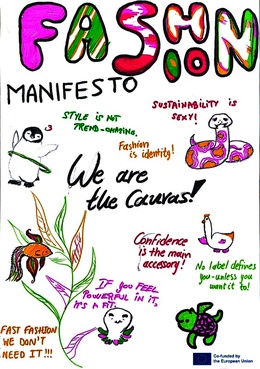 FASHION
MANIFESTO
STYLE IS NOT
TREND-CHASING.
SUSTAINABILITY IS
SEXY!
Fashion
is identity!
We are
the Canvas!
Confidence
is the main
accessory!
No label defines
you-unless you
want it to!
IF YOU FEEL
POWERFUL IN IT,
IT'S A FIT.
FAST FASHION
WE DON'T
NEED IT!!!
Co-funded by
the European Union